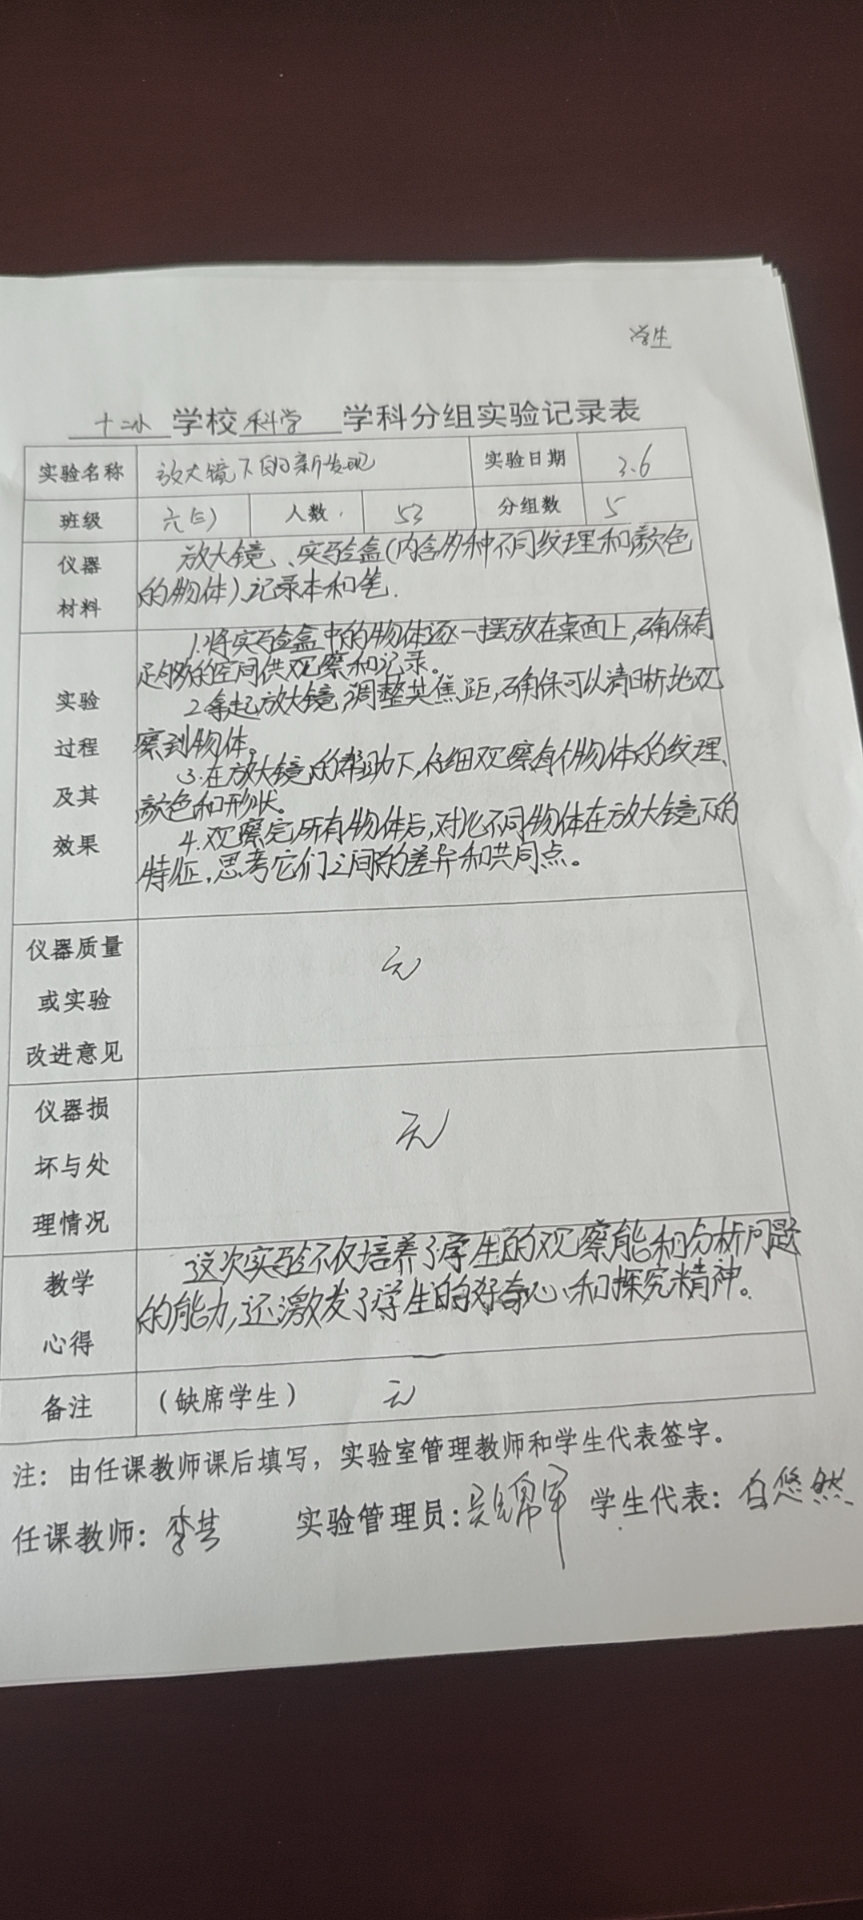 学生
十二小学校科学学科分组实验记录表
实验名称 放大镜下的新发现 实验日期 3.6
班级 六(三) 人数 53 分组数 5
仪器 放大镜、实验盒(内含多种不同纹理和颜色
材料 的物体)、记录本和笔.
1.将实验盒中的物体逐一摆放在桌面上,确保有
足够的空间供观察和记录。
实验 2.拿起放大镜,调整其焦距,确保可以清晰地观
过程 察到物体。
3.在放大镜的帮助下,仔细观察每个物体的纹理、
及其 颜色和形状。
效果 4.观察完所有物体后,对比不同物体在放大镜下的
特征,思考它们之间的差异和共同点。
仪器质量
或实验 无
改进意见
仪器损
坏与处 无
理情况
教学 这次实验不仅培养了学生的观察能和分析问题
心得 的能力,还激发了学生的好奇心和探究精神。
备注 (缺席学生) 无
注：由任课教师课后填写，实验室管理教师和学生代表签字。
任课教师: 李 实验管理员: 吴锦军 学生代表: 白悠然